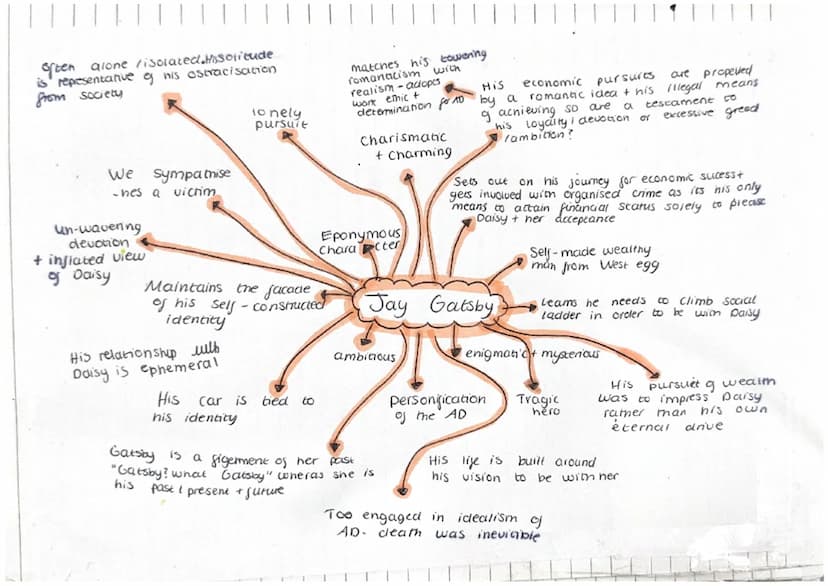 often alone /isolated. His solitude
is representative of his ostracisation
from society
lonely
pursuit
matches his towering
romanticism with
realism - adopts
work ethic +
determination for AD
His economic pursuits are propelled
by a romantic idea + his illegal means
of achieving so are a testament to
his loyalty / devotion or excessive greed
/ambition?
Charismatic
+ charming
We sympathise
-hes a victim
Sets out on his journey for economic sucess +
gets involved with organised crime as its his only
means to attain financial status solely to please
Daisy + her acceptance
Un-wavering
devotion
+ inflated view
of Daisy
Eponymous
character
Self-made wealthy
man from West egg
Maintains the facade
of his self-constructed
identity
Jay Gatsby
Learns he needs to climb social
ladder in order to be with Daisy
His relationship with
Daisy is ephemeral
ambitious
enigmatic + mysterious
His car is tied to
his identity
Personification
of the AD
Tragic
hero
His pursuit of wealth
was to impress Daisy
rather than his own
eternal drive
Gatsby is a figerment of her past
"Gatsby? what Gatsby" wheras she is
his past / present + future
His life is built around
his vision to be with her
Too engaged in idealism of
AD- death was inevitable